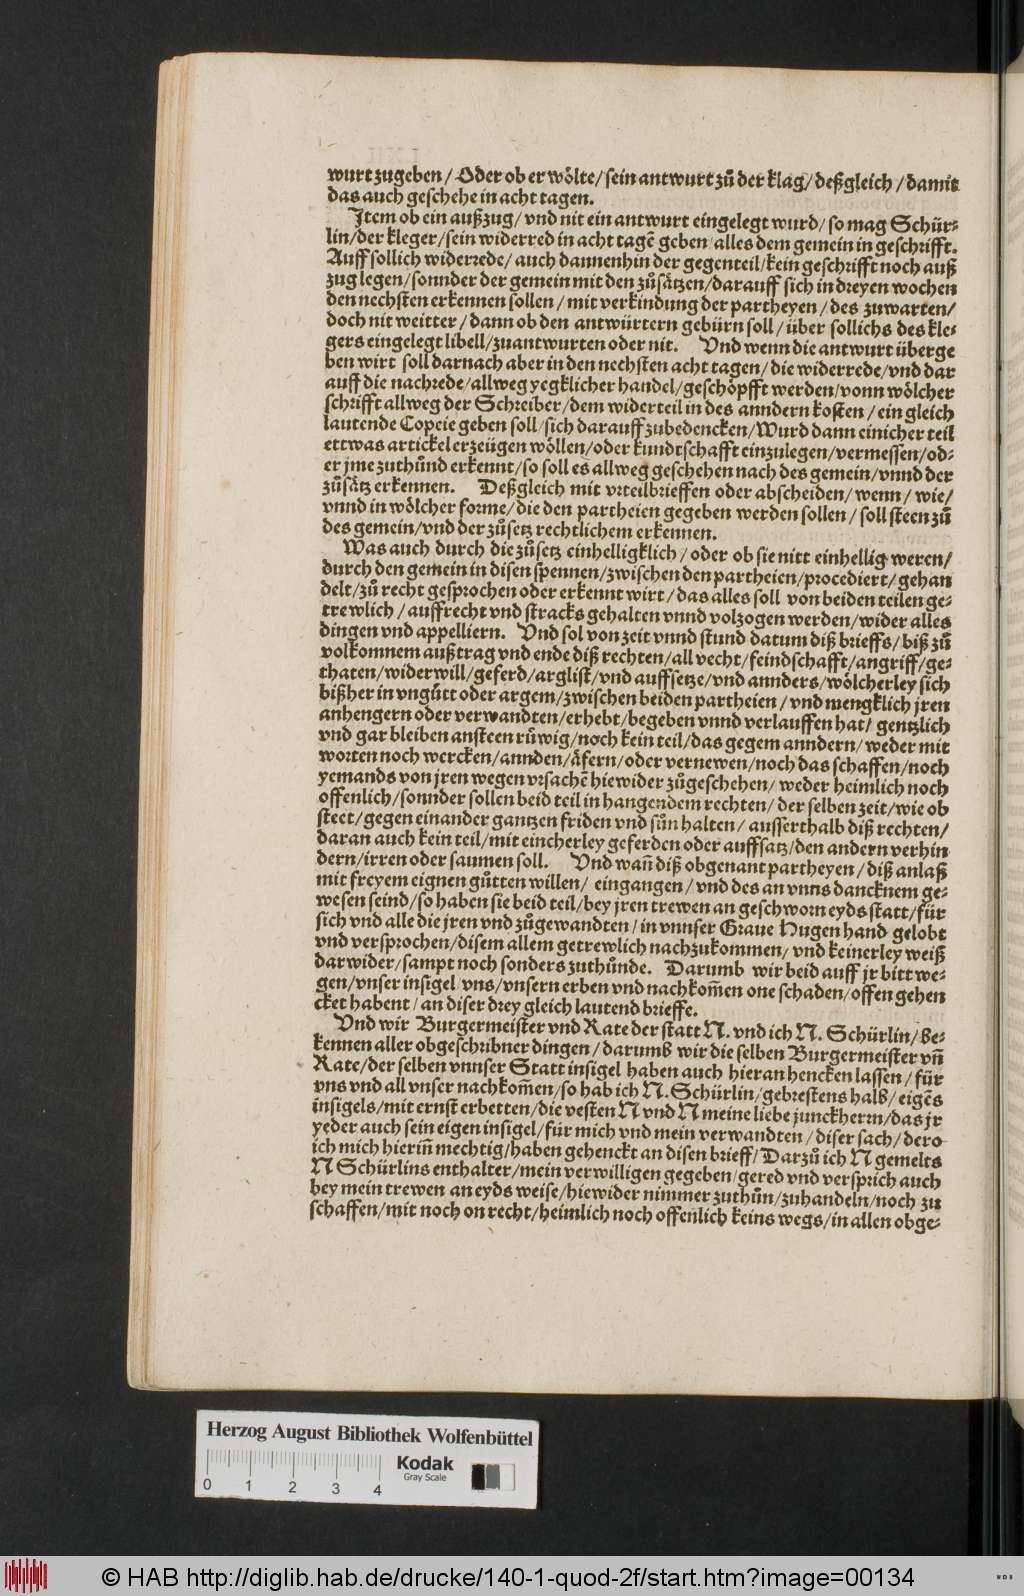 wurt zugeben / Oder ob er wölte / sein antwurt zů der klag / deßgleich / damit
das auch geschehe in acht tagen.
Jtem ob ein außzug / vnd nit ein antwurt eingelegt wurd / so mag Schür-
lin / der kleger / sein widerred in acht tagē geben / alles dem gemein in geschrifft.
Auff sollich widerrede / auch dannenhin der gegenteil / kein geschrifft noch auß
zug legen / sonnder der gemein mit den zůsätzen / darauff sich in dreyen wochen
den nechsten erkennen sollen / mit verkindung der partheyen / des zuwarten /
doch nit weitter / dann ob den antwürtern gebürn soll / über sollichs des kle-
gers eingelegt libell / zuantwurten oder nit. Vnd wenn die antwurt überge
ben wirt soll darnach aber in den nechsten acht tagen / die widerrede / vnd dar
auff die nachrede / allweg yegklicher handel / geschöpfft werden / vonn wölcher
schrifft allweg der Schreiber / dem widerteil in des anndern kosten / ein gleich
lautende Copeie geben soll / sich darauff zubedencken / Wurd dann einicher teil
ettwas artickel erzeügen wöllen / oder kundtschafft einzulegen / vermessen / od-
er jme zuthůnd erkennt / so soll es allweg geschehen nach des gemein / vnnd der
zůsätz erkennen. Deßgleich mit vrteilbrieffen oder abscheiden / wenn / wie /
vnnd in wölcher forme / die den partheien gegeben werden sollen / soll steen zů
des gemein / vnd der zůsetz rechtlichem erkennen.
Was auch durch die zůsetz einhelligklich / oder ob sie nitt einhellig weren /
durch den gemein in disen spennen / zwischen den partheien / procediert / gehan
delt / zů recht gesprochen oder erkennt wirt / das alles soll von beiden teilen ge-
trewlich / auffrecht vnd stracks gehalten vnnd volzogen werden / wider alles
dingen vnd appelliern. Vnd sol von zeit vnnd stund datum diß brieffs / biß zů
volkomnem außtrag vnd ende diß rechten / all vecht / feindschafft / angriff / ge-
thaten / widerwill / geferd / arglist / vnd auffsetze / vnd annders / wölcherley sich
bißher in vngůtt oder argem / zwischen beiden partheien / vnd mengklich jren
anhengern oder verwandten / erhebt / begeben vnnd verlauffen hat / gentzlich
vnd gar bleiben ansteen růwig / noch kein teil / das gegem anndern / weder mit
worten noch wercken / annden / äfern / oder vernewen / noch das schaffen / noch
yemands von jren wegen vrsachē hiewider zůgeschehen / weder heimlich noch
offenlich / sonnder sollen beid teil in hangendem rechten / der selben zeit / wie ob
steet / gegen einander gantzen friden vnd sůn halten / ausserthalb diß rechten /
daran auch kein teil / mit eincherley geferden oder auffsatz / den andern verhin
dern / irren oder saumen soll. Vnd wañ diß obgenant partheyen / diß anlaß
mit freyem eignen gůtten willen / eingangen / vnd des an vnns dancknem ge-
wesen seind / so haben sie beid teil / bey jren trewen an geschworn eyds statt / für
sich vnd alle die jren vnd zůgewandten / in vnnser Graue Hugen hand gelobt
vnd versprochen / disem allem getrewlich nachzukommen / vnd keinerley weiß
darwider / sampt noch sonders zuthůnde. Darumb wir beid auff jr bitt we-
gen / vnser insigel / vns / vnsern erben vnd nachkom̄en one schaden / offen gehen
cket habent / an diser drey gleich lautend brieffe.
Vnd wir Burgermeister vnd Rate der statt N. vnd ich N. Schürlin / be-
kennen aller obgeschribner dingen / darumb wir die selben Burgermeister vñ
Rate / der selben vnnser Statt insigel haben auch hieran hencken lassen / für
vns vnd all vnser nachkom̄en / so hab ich N. Schürlin / gebrestens halb / eigēs
insigels / mit ernst erbetten / die vesten N vnd N meine liebe junckherrn / das jr
yeder auch sein eigen insigel / für mich vnd mein verwandten / diser sach / dero
ich mich hieriñ mechtig / haben gehenckt an disen brieff / Darzů ich N gemelts
N Schürlins enthalter / mein verwilligen gegeben / gered vnd versprich auch
bey mein trewen an eyds weise / hiewider nimmer zuthůn / zuhandeln / noch zu
schaffen / mit noch on recht / heimlich noch offenlich keins wegs / in allen obge-
Herzog August Bibliothek Wolfenbüttel
Kodak
Gray Scale
0 1 2 3 4
© HAB http://diglib.hab.de/drucke/140-1-quod-2f/start.htm?image=00134